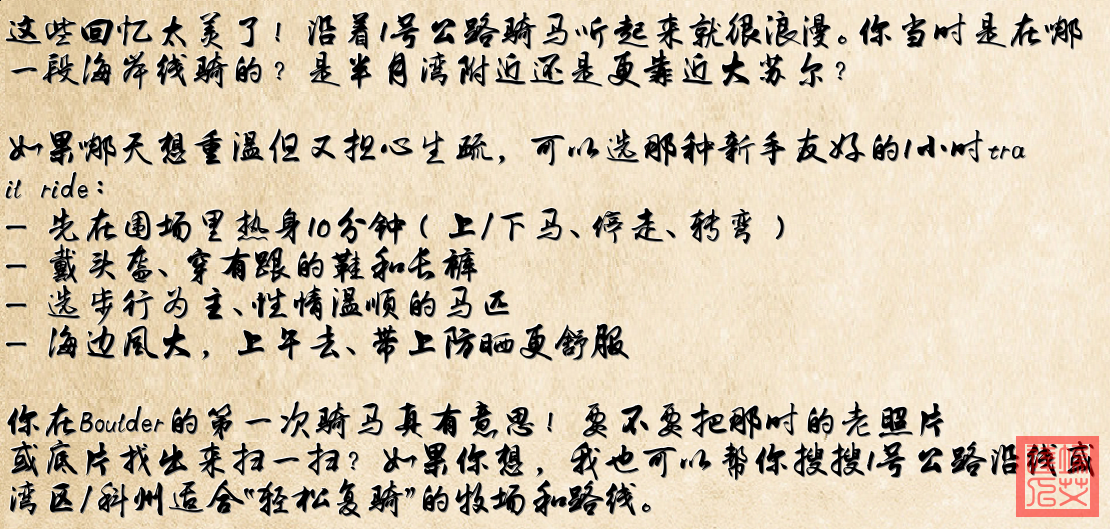 这些回忆太美了！沿着1号公路骑马听起来就很浪漫。你当时是在哪
一段海岸线骑的？是半月湾附近还是更靠近大苏尔？
如果哪天想重温但又担心生疏，可以选那种新手友好的1小时tra
il ride：
- 先在围场里热身10分钟（上/下马、停走、转弯）
- 戴头盔、穿有跟的鞋和长裤
- 选步行为主、性情温顺的马匹
- 海边风大，上午去、带上防晒更舒服
你在Boulder的第一次骑马真有意思！要不要把那时的老照片
或底片找出来扫一扫？如果你想，我也可以帮你搜搜1号公路沿线或
湾区/科州适合“轻松复骑”的牧场和路线。